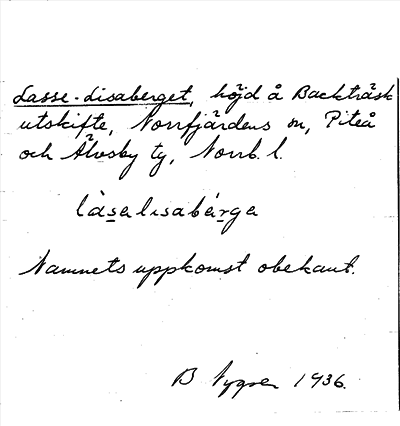 Lasse-Lisaberget, höjd å Backträsk
utskifte, Norrfjärdens sn, Piteå
och Älvsby tg, Norrb. l.
làsalisabárga
Namnets uppkomst obekant.
B 1936.